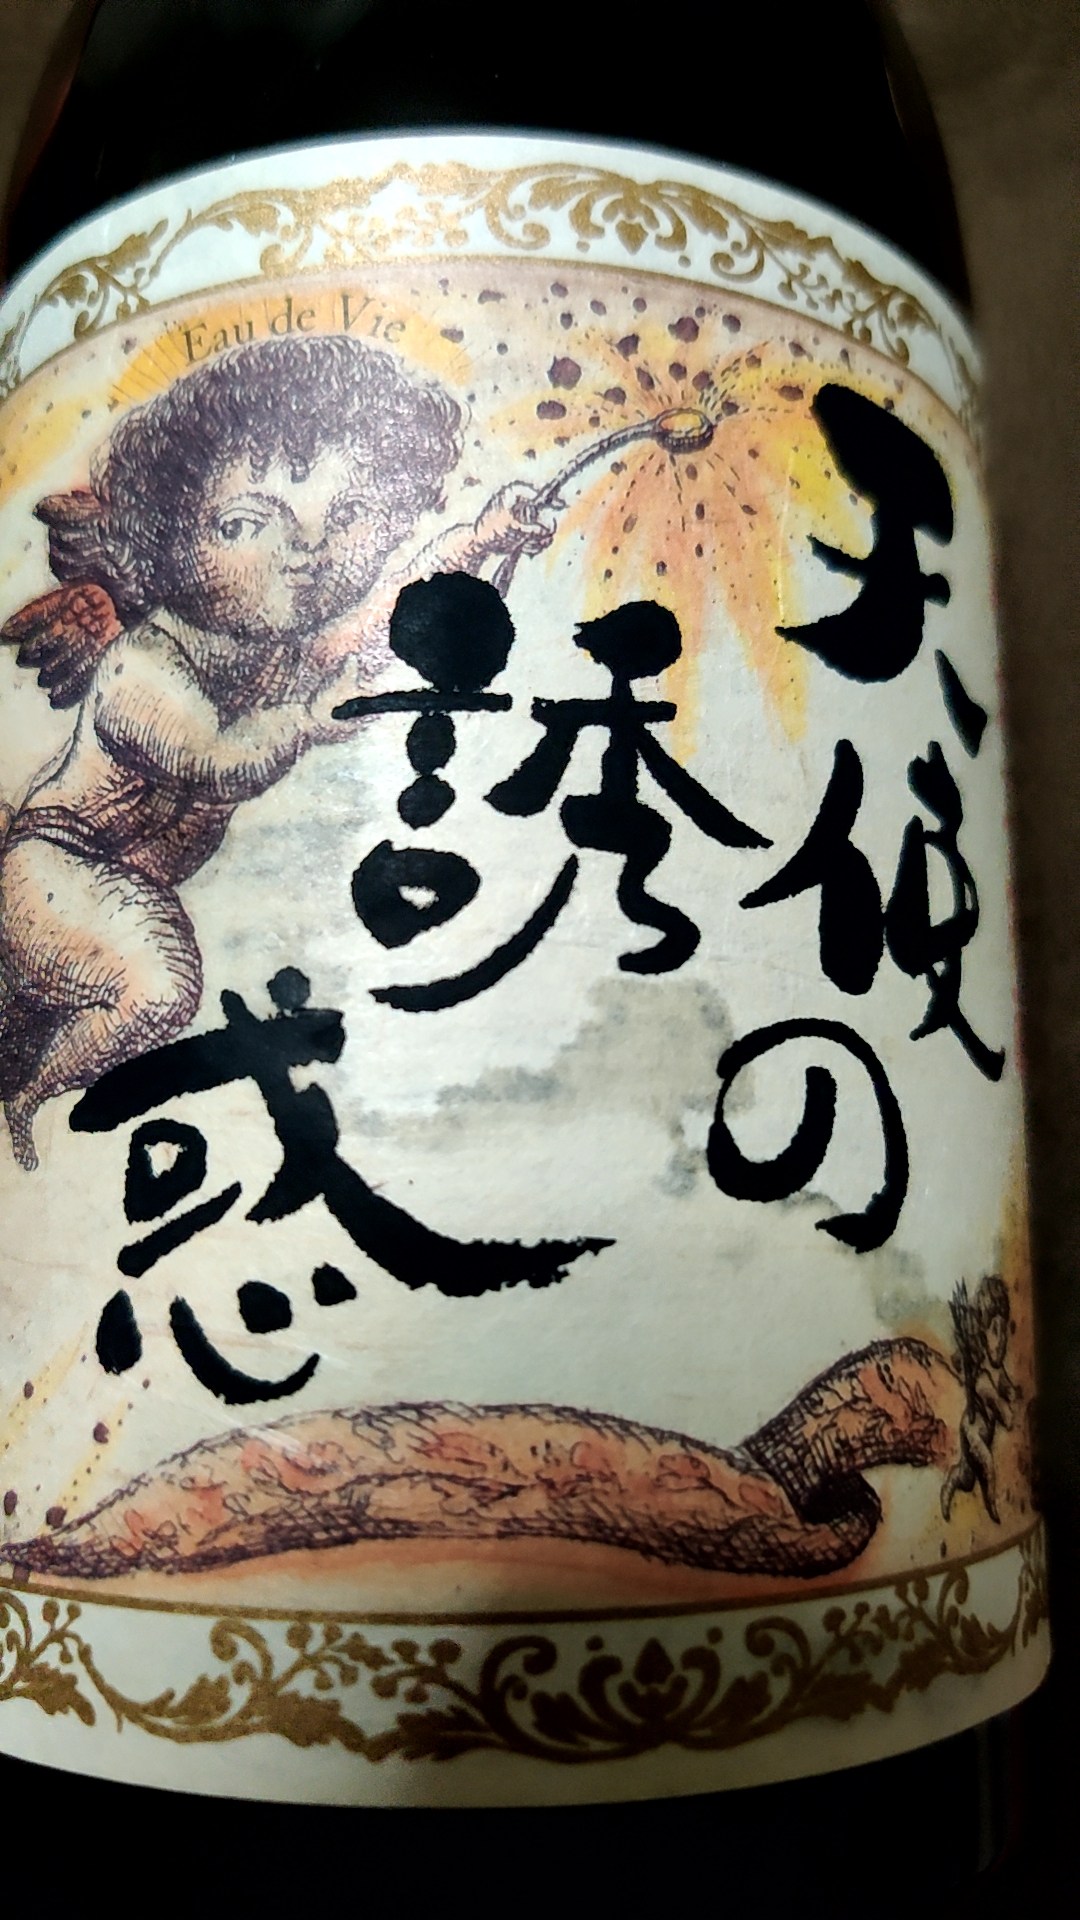 Eau de Vie
天使の
誘
惑